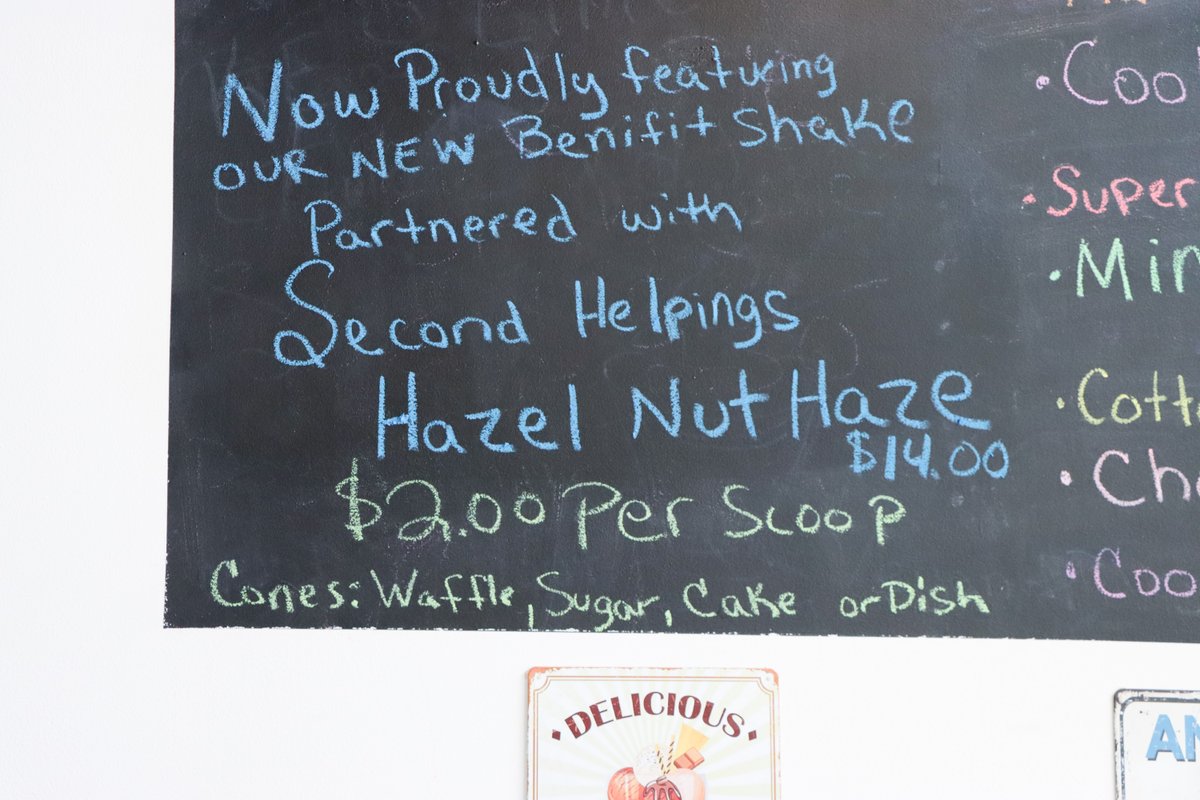 Now Proudly featuring
OUR NEW Benifit Shake
Partnered with
Second Helpings
Hazel Nut Haze
$14.00
$2.00 Per Scoop
Cones: Waffle, Sugar, Cake or Dish
• Super
• DELICIOUS •